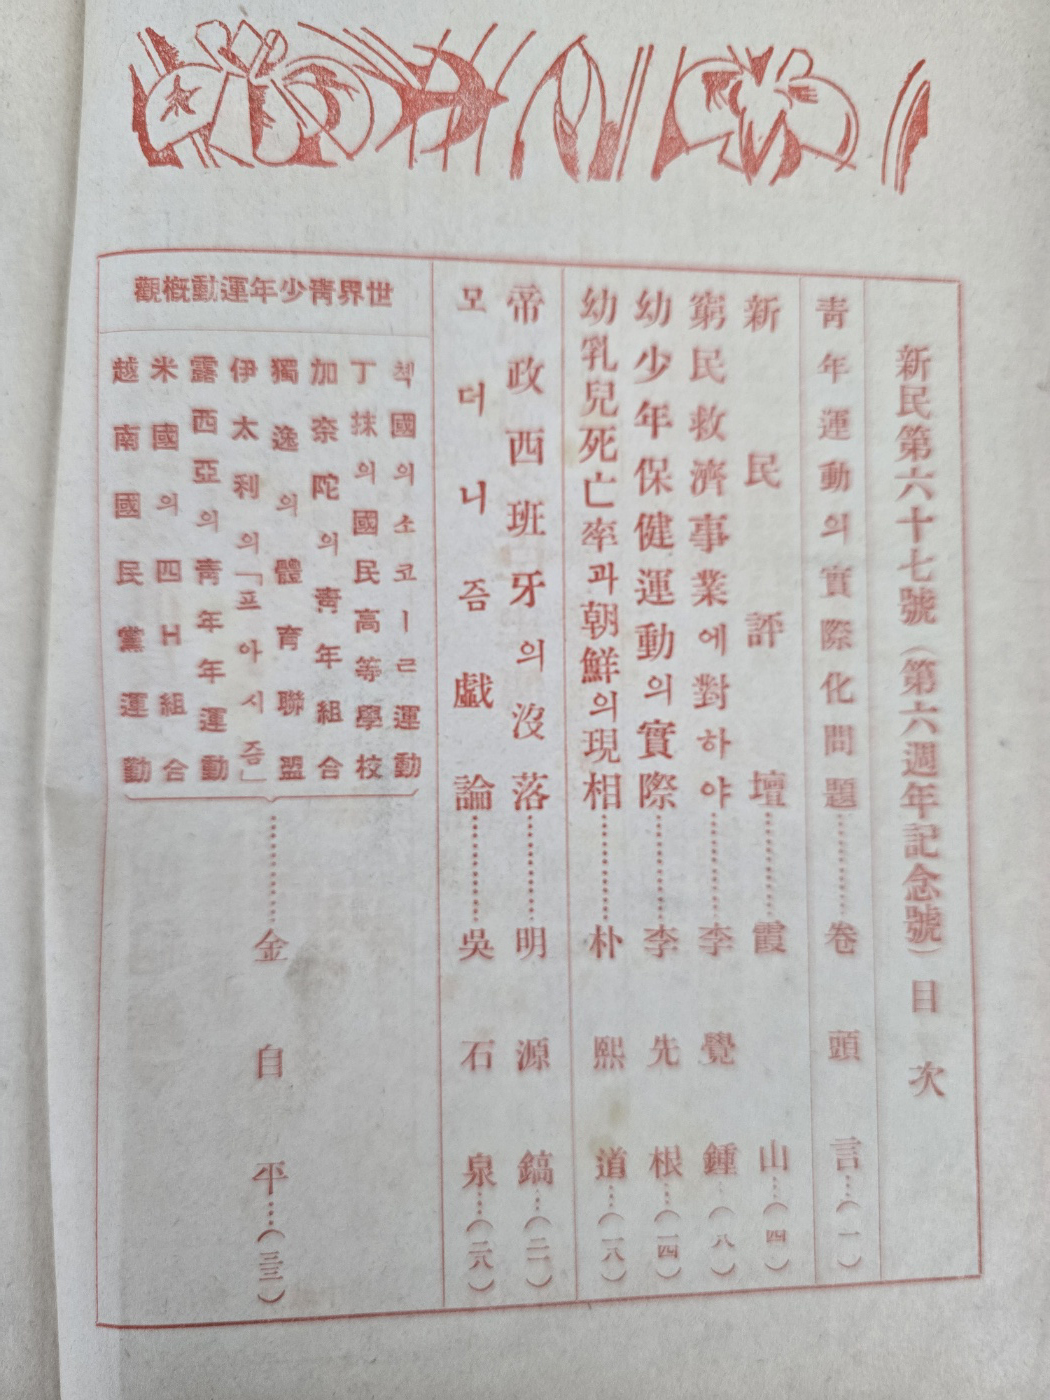 新民第六十七號（第六週年記念號）目次
靑年運動의實際化問題………卷頭言…（一）
新民評壇………霞山…（四）
窮民救濟事業에對하야………李覺鍾…（八）
幼少年保健運動의實際………李先根…（一四）
幼乳兒死亡率과朝鮮의現相………朴熙道…（一八）
帝政西班牙의沒落………明源鎬…（二一）
모더니즘戱論………吳石泉…（二八）
世界靑少年運動槪觀
첵國의소코ー르運動
丁抹의國民高等學校
加奈陀의靑年組合
獨逸의體育聯盟
伊太利의「프아시즘」
露西亞의靑年年運動
米國의四H組合
越南國民黨運動
………金自平…（三三）